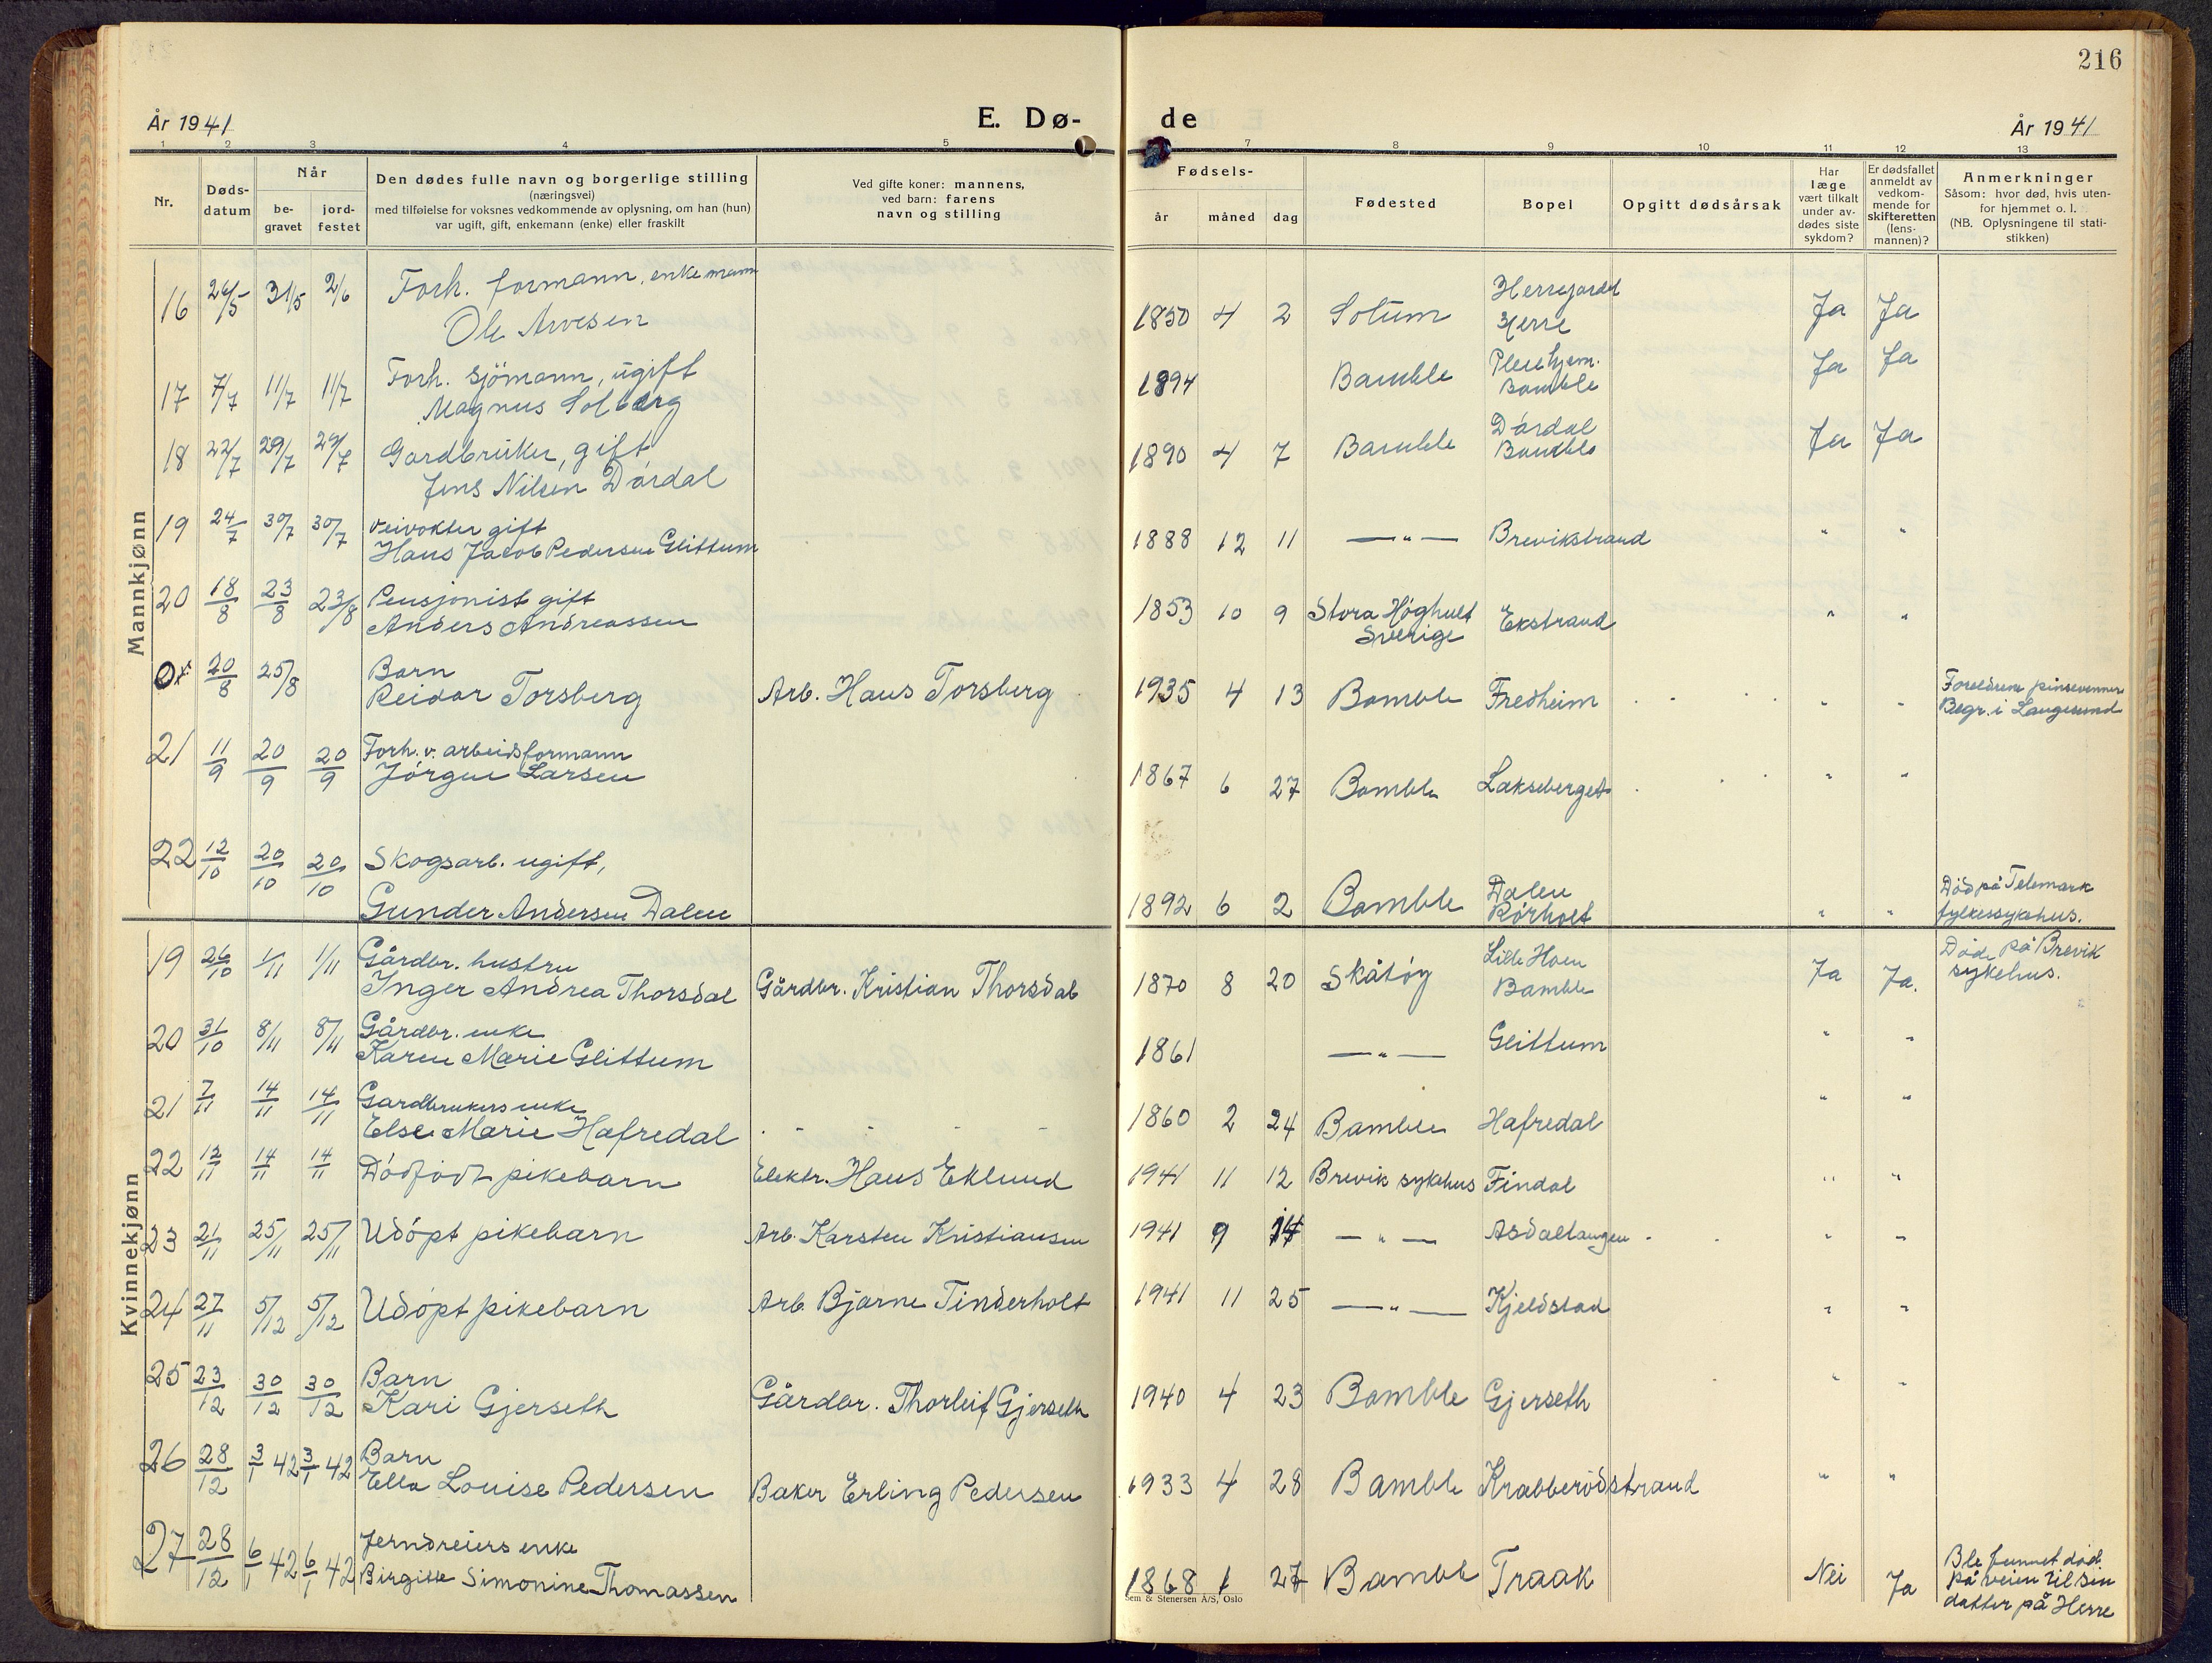 216
År 1941
E. Dø-
de
År 1941
1 2 3 4 5 7 8 9 10 11 12 13
Nr.
Døds-
datum
Når
be-
gravet
jord-
festet
Den dødes fulle navn og borgerlige stilling
(næringsvei)
med tilføielse for voksnes vedkommende av oplysning, om han (hun)
var ugift, gift, enkemann (enke) eller fraskilt
Ved gifte koner: mannens,
ved barn: farens
navn og stilling
Fødsels-
år måned dag
Fødested
Bopel
Opgitt dødsårsak
Har
læge
vært tilkalt
under av-
dødes siste
sykdom?
Er dødsfallet
anmeldt av
vedkom-
mende for
skifteretten
(lens-
mannen)?
Anmerkninger
Såsom: hvor død, hvis uten-
for hjemmet o. l.
(NB. Oplysningene til stati-
stikken)
Mannkjønn
16 26/5 31/5 2/6 Forh. formann, enkemann
Ole Arvesen
1850 4 2 Sotum Herre Ja Ja
17 7/7 11/7 11/7 Forh. sjömann, ugift
Magnus Solberg
1894 Bamble Pleiehjem.
Bamble Ja Ja
18 22/7 29/7 29/7 Gardbruker, gift
Jens Nilsen Dårdal
1890 4 7 Bamble Dårdal
Bamble Ja Ja
19 24/7 30/7 30/7 Veivokter gift
Hans Jacob Pedersen Glittum
1888 12 11 —"— Brevikstrand " "
20 18/8 23/8 23/8 Pensjonist gift
Anders Andreassen
1853 10 9 Stora Höghult
Sverige Ekstrand " "
20/8 25/8 Barn
Reidar Torsberg Arb. Hans Torsberg
1935 4 13 Bamble Fredheim " " Foreldrene pinsevenner
Begr. i Langesund
21 11/9 20/9 20/9 Forh. v. arbeidsformann
Jörgen Larsen
1867 6 27 Bamble Lakseberget " "
22 12/10 20/10 20/10 Skogsarb. ugift,
Gunder Andersen Dalen
1892 6 2 Bamble Dalen
Rörholt " " Död på Telemark
fylkessykehus.
Kvinnekjønn
19 26/10 1/11 1/11 Gårdbr. hustru
Inger Andrea Thorsdal Gårdbr. Kristian Thorsdal
1870 8 20 Skåtöy Lille Hoen
Bamble Ja Ja. Döde på Brevik
sykehus.
20 31/10 8/11 8/11 Gårdbr. enke
Karen Marie Glittum
1861 —"— Glittum " "
21 7/11 14/11 14/11 Gardbrukers enke
Else Marie Hafredal
1860 2 24 Bamble Hafredal " "
22 12/11 14/11 14/11 Dödfödt pikebarn Elektr. Hans Eklund
1941 11 12 Brevik sykehus Findal " "
23 21/11 25/11 25/11 Udöpt pikebarn Arb. Karsten Kristiansen
1941 9 14 —"— Asdaltangen " "
24 27/11 5/12 5/12 Udöpt pikebarn Arb. Bjarne Tinderholt
1941 11 25 —"— Kjeldstad " "
25 23/12 30/12 30/12 Barn
Kari Gjerseth Gårdbr. Thorleif Gjerseth
1940 4 23 Bamble Gjerseth " "
26 28/12 3/1 42 3/1 42 Barn
Ella Louise Pedersen Baker Erling Pedersen
1933 4 28 Bamble Krabberödstrand " "
27 28/12 6/1 42 6/1 42 Jerndreiers enke
Birgitte Simonine Thomassen
1868 1 27 Bamble Traak Nei Ja Ble funnet död
på veien til sin
datter på Herre
Sem & Stenersen A/S, Oslo